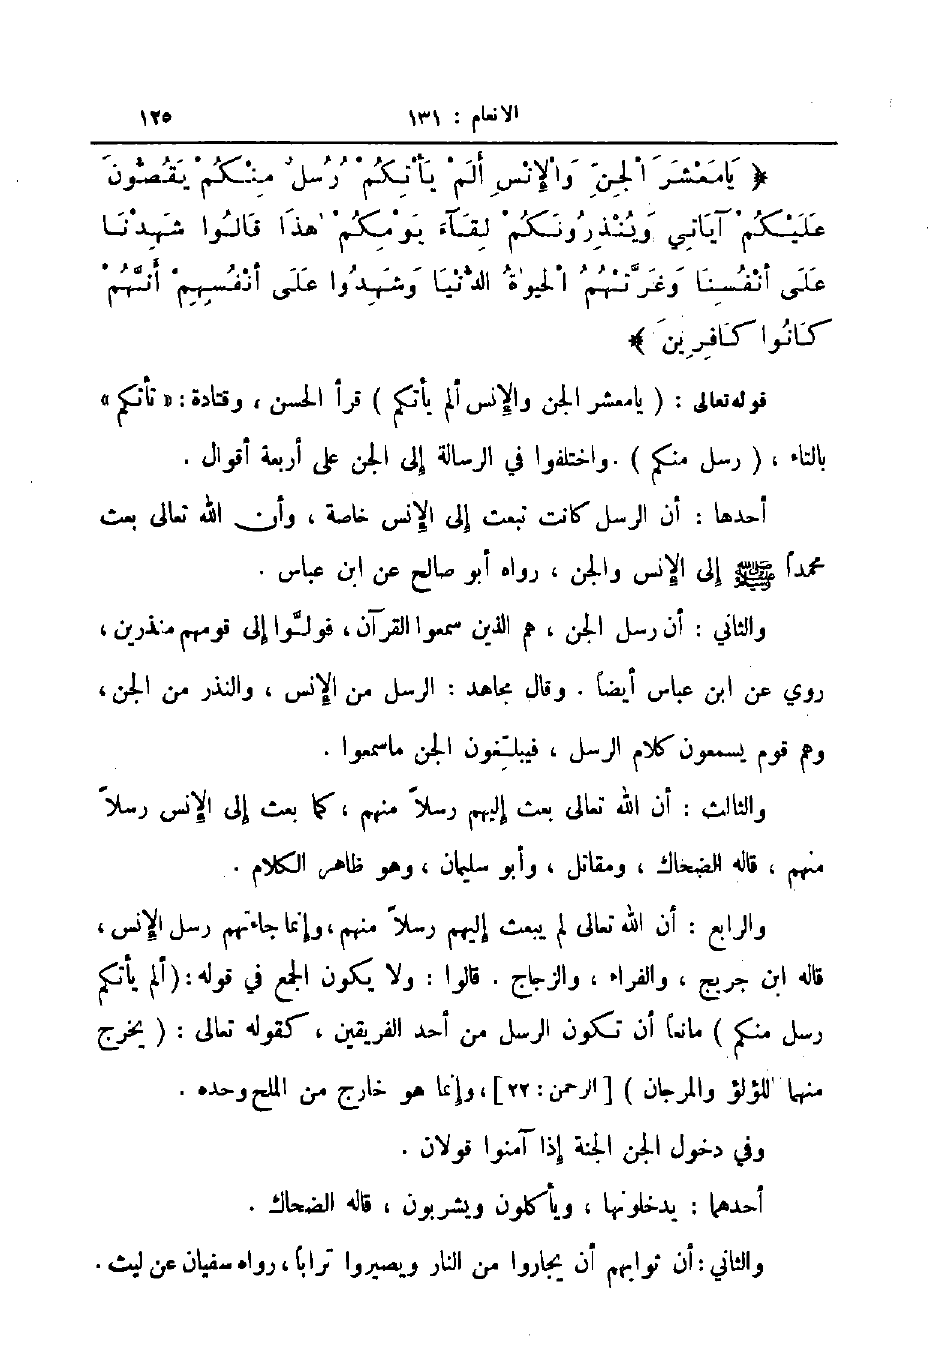 الانعام : ١٣١ ١٢٥
﴿ يَامَعْشَرَ الْجِنِّ وَالْإِنْسِ أَلَمْ يَأْتِكُمْ رُسُلٌ مِنْكُمْ يَقُصُّونَ
عَلَيْكُمْ آيَاتِي وَيُنْذِرُونَكُمْ لِقَآءَ يَوْمِكُمْ هٰذَا قَالُوا شَهِدْنَا
عَلَى أَنْفُسِنَا وَغَرَّتْهُمُ الْحَيٰوةُ الدُّنْيَا وَشَهِدُوا عَلَى أَنْفُسِهِمْ أَنَّهُمْ
كَانُوا كَافِرِينَ ﴾
قوله تعالى : ( يامعشر الجن والإنس ألم يأتكم ) قرأ الحسن ، وقتادة : « تأتكم »
بالتاء ، ( رسل منكم ) . واختلفوا في الرسالة إلى الجن على أربعة أقوال .
أحدها : أن الرسل كانت تبعث إلى الإنس خاصة ، وأن الله تعالى بعث
محمداً ﷺ إلى الإنس والجن ، رواه أبو صالح عن ابن عباس .
والثاني : أن رسل الجن ، هم الذين سمعوا القرآن ، فولَّوا إلى قومهم منذرين ،
روي عن ابن عباس أيضاً . وقال مجاهد : الرسل من الإنس ، والنذر من الجن ،
وهم قوم يسمعون كلام الرسل ، فيبلِّغون الجن ماسمعوا .
والثالث : أن الله تعالى بعث إليهم رسلاً منهم ، كما بعث إلى الإنس رسلاً
منهم ، قاله الضحاك ، ومقاتل ، وأبو سليمان ، وهو ظاهر الكلام .
والرابع : أن الله تعالى لم يبعث إليهم رسلاً منهم ، وإنما جاءتهم رسل الإنس ،
قاله ابن جريج ، والفراء ، والزجاج . قالوا : ولا يكون الجمع في قوله : ( ألم يأتكم
رسل منكم ) مانعاً أن تكون الرسل من أحد الفريقين ، كقوله تعالى : ( يخرج
منهما اللؤلؤ والمرجان ) [ الرحمن : ٢٢ ] ، وإنما هو خارج من الملح وحده .
وفي دخول الجن الجنة إذا آمنوا قولان .
أحدهما : يدخلونها ، ويأكلون ويشربون ، قاله الضحاك .
والثاني : أن ثوابهم أن يجاروا من النار ويصيروا تراباً ، رواه سفيان عن ليث .